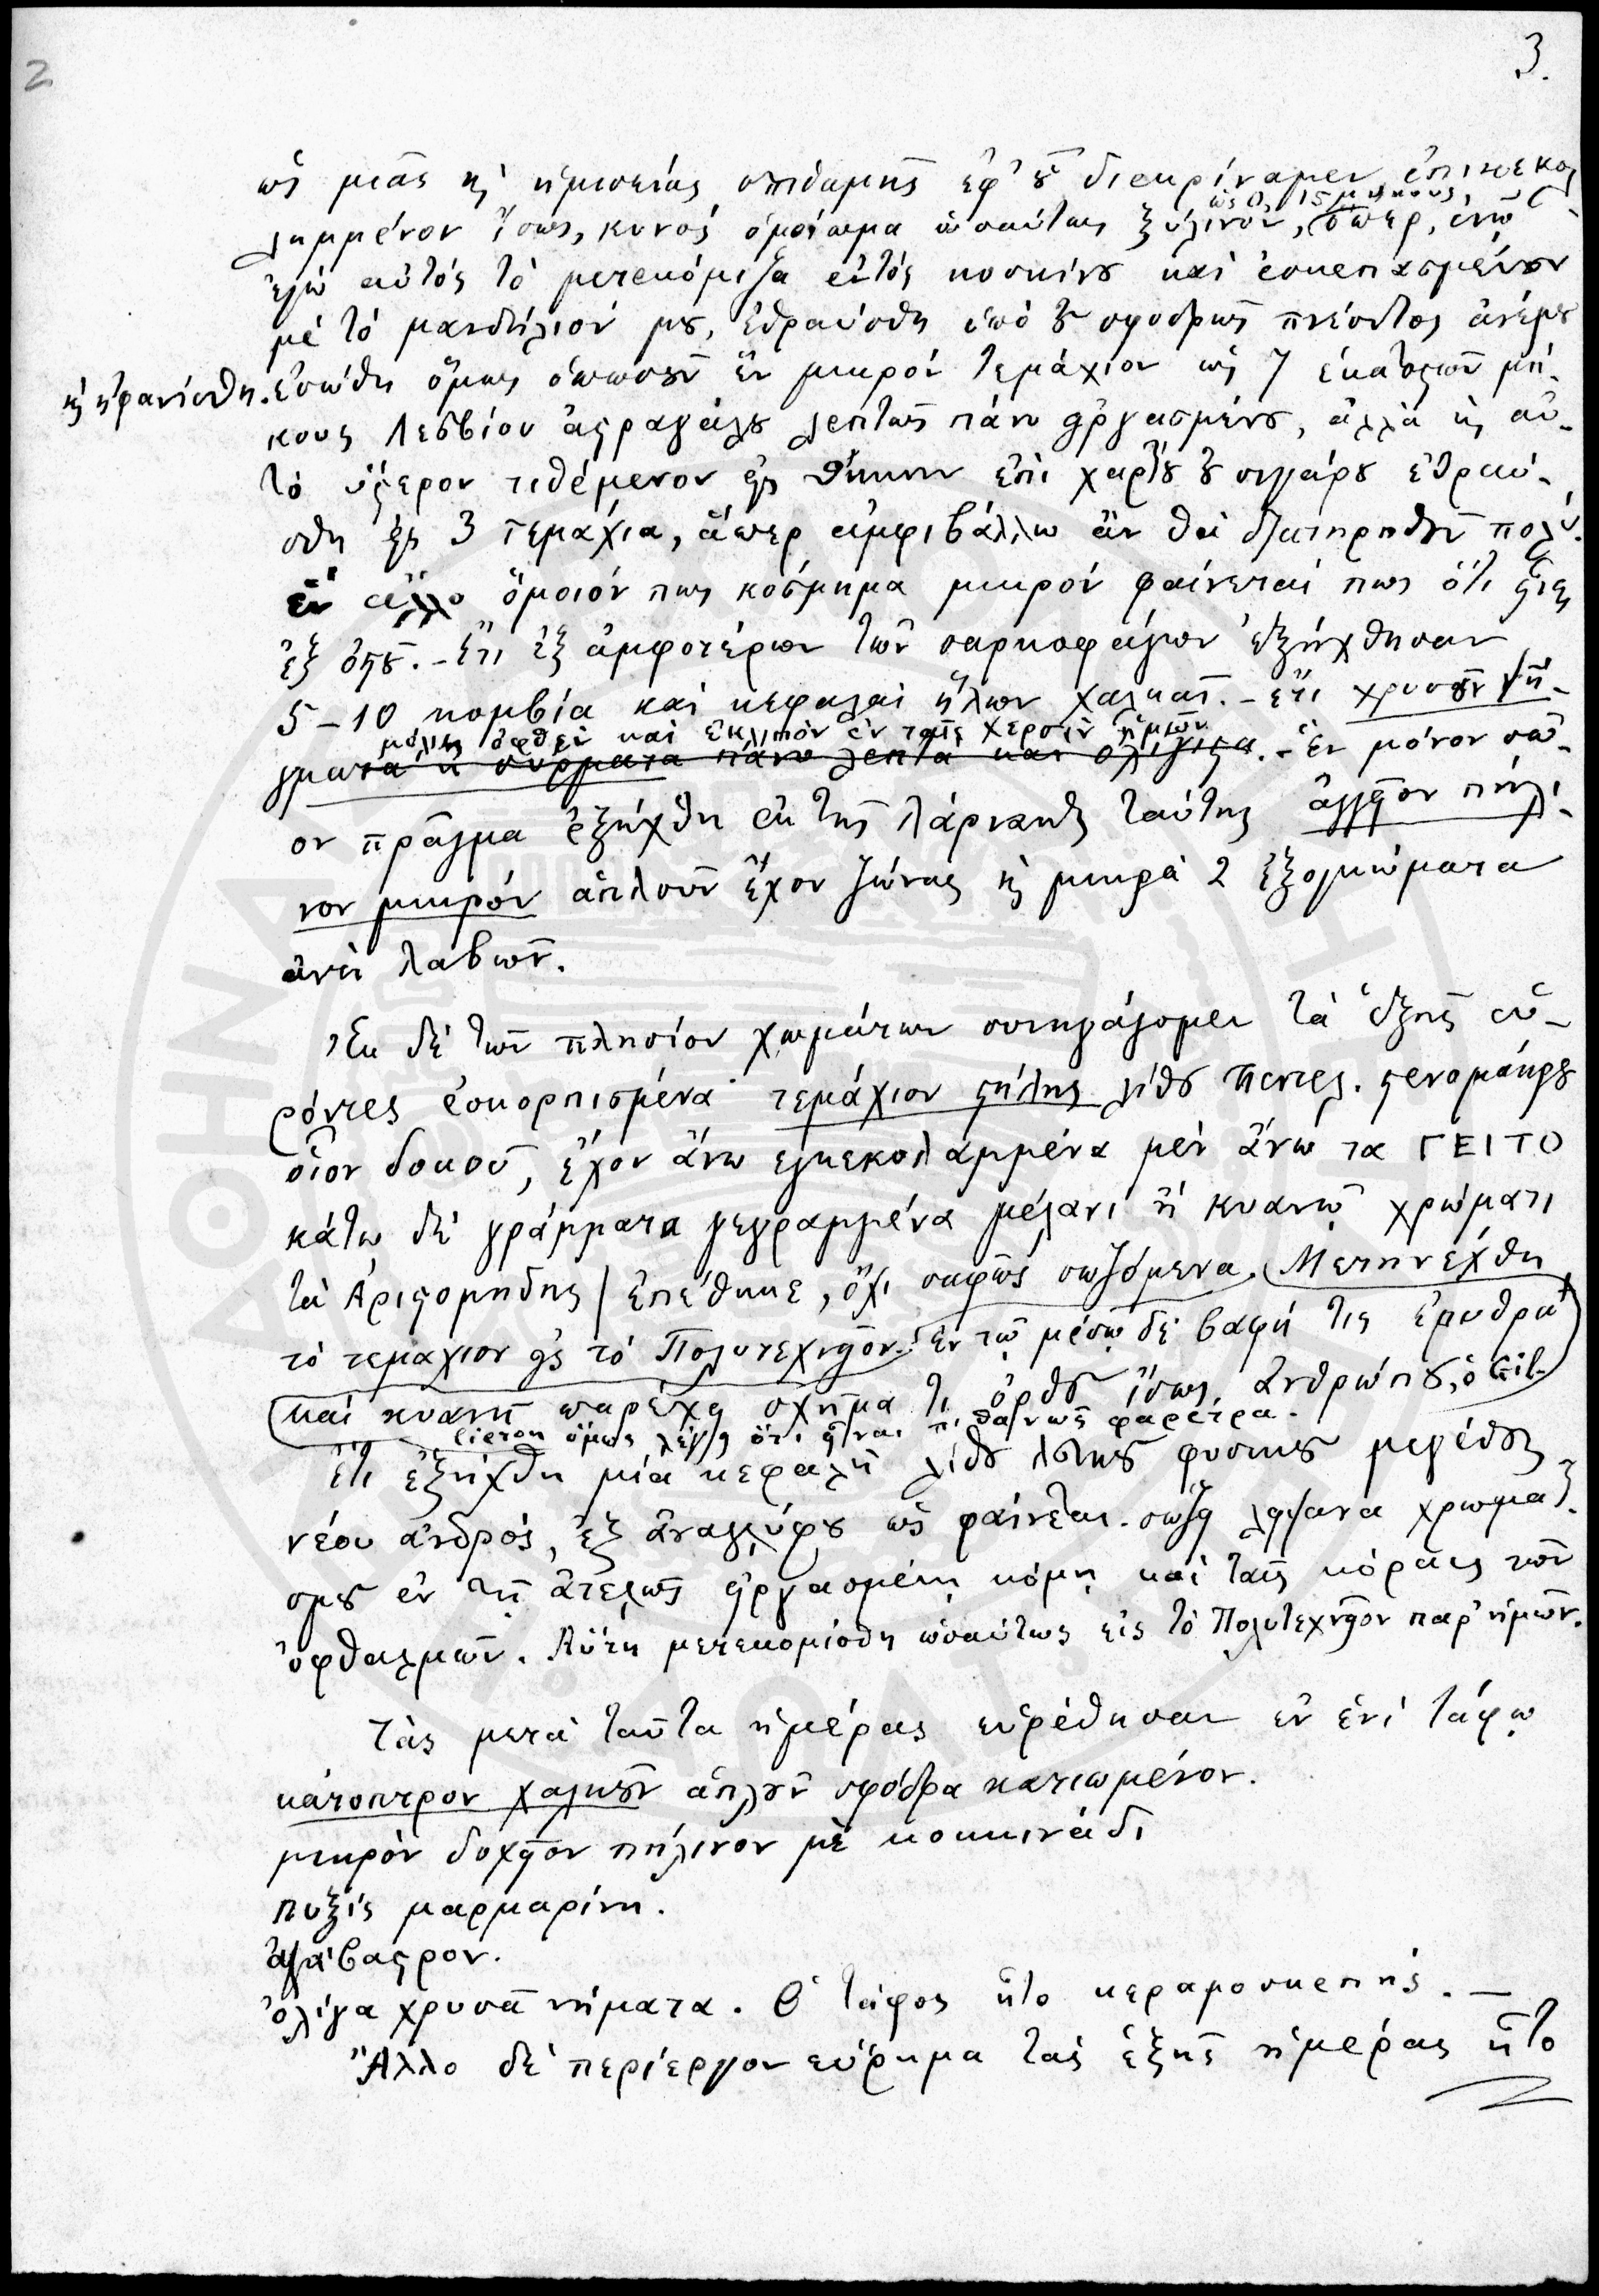 2
3.
ὡς μιᾶς κ̀ ἡμισείας σπιθαμῆς ἐφ' οὗ διεκρίναμεν ἐπικεκολ-
ὡς 0, 15 μήκους,
λημμένον ἴσως, κυνὸς ὁμοίωμα ὡσαύτως ξύλινον, ὅπερ, ἐνῷ
ἐγὼ αὐτὸς τὸ μετεκόμιζα ἐντὸς κοσκίνου καὶ ἐσκεπασμένον
μὲ τὸ μανδήλιόν μου, ἐθραύσθη ὑπὸ τοῦ σφοδρῶς πνέοντος ἀνέμου
κ̀ ἠφανίσθη. Ἐσώθη ὅμως ὁπωσοῦν ἓν μικρὸν τεμάχιον ὡς 7 ἑκατοστῶν μή-
κους Λεσβίου ἀστραγάλου λεπτῶς πάνυ εἰργασμένου, ἀλλὰ κ̀ αὐ-
τὸ ὕστερον τιθέμενον εἰς θήκην ἐπὶ χαρτίου τοῦ σιγάρου ἐθραύ-
σθη εἰς 3 τεμάχια, ἅπερ ἀμφιβάλλω ἂν θὰ διατηρηθῶσι πολύ.
ἓν ἄλλο ὅμοιόν πως κόσμημα μικρὸν φαίνεταί πως ὅτι εἶναι
ἐξ ὀστοῦ. - Ἔτι ἐξ ἀμφοτέρων τῶν σαρκοφάγων ἐξήχθησαν
5-10 κομβία καὶ κεφαλαὶ ἥλων χαλκαῖ. - ἔτι χρυσοῦν νῆ-
μόλις ὀφθὲν καὶ ἐκλιπὸν ἐν ταῖς χερσὶν ἡμῶν
γματα ἢ σύρματα πάνυ λεπτὰ καὶ ὀλίγιστα. - Ἓν μόνον σῶ-
ον πρᾶγμα ἐξήχθη ἐκ τῆς λάρνακος ταύτης ἀγγεῖον πήλι-
νον μικρόν ἁπλοῦν ἔχον ζώνας κ̀ μικρὰ 2 ἐξογκώματα
ἀντὶ λαβῶν.
Ἐκ δὲ τῶν πλησίον χωμάτων συνηγάγομεν τὰ ἑξῆς εὑ-
ρόντες ἐσκορπισμένα· τεμάχιον στήλης λίθου Πεντελ. στενομάκρου
οἷον δοκοῦ, ἔχον ἄνω εγκεκολαμμένα μὲν ἄνω τα ΓΕΙΤΟ
κάτω δὲ γράμματα γεγραμμένα μέλανι ἢ κυανῷ χρώματι
τὰ Ἀριστομηδης / ἐπέθηκε, ὄχι σαφῶς σωζόμενα. Μετηνέχθη
τὸ τεμαχιον εἰς τὸ Πολυτεχνεῖον. Ἐν τῷ μέσῳ δὲ βαφή τις ἐρυθρὰ
καὶ κυανῆ παρέχει σχῆμά τι ὀρθοῦ ἴσως ἀνθρώπου, ὁ Gil-
lieron ὅμως λέγει ὅτι εἶναι πιθανῶς φαρέτρα.
Ἔτι ἐξήχθη μία κεφαλὴ λίθου λευκοῦ φυσικοῦ μεγέθους
νέου ἀνδρός, ἐξ ἀναγλύφου ὡς φαίνεται. σώζει λείψανα χρωματι-
σμοῦ ἐν τῇ ἀτελῶς εἰργασμένῃ κόμῃ καὶ ταῖς κόραις τῶν
ὀφθαλμῶν. Αὕτη μετεκομίσθη ὡσαύτως εἰς τὸ Πολυτεχνεῖον παρ' ἡμῶν.
Τὰς μετὰ ταῦτα ἡμέρας εὑρέθησαν ἐν ἑνὶ τάφῳ
κάτοπτρον χαλκοῦν ἁπλοῦν σφόδρα κατιωμένον.
μικρὸν δοχεῖον πήλινον μὲ κοκκινάδι
πυξὶς μαρμαρίνη.
ἀλάβαστρον.
ὀλίγα χρυσᾶ νήματα. Ὁ τάφος ἦτο κεραμοσκεπής. —
Ἄλλο δὲ περίεργον εὕρημα τὰς ἑξῆς ἡμέρας ἦτο